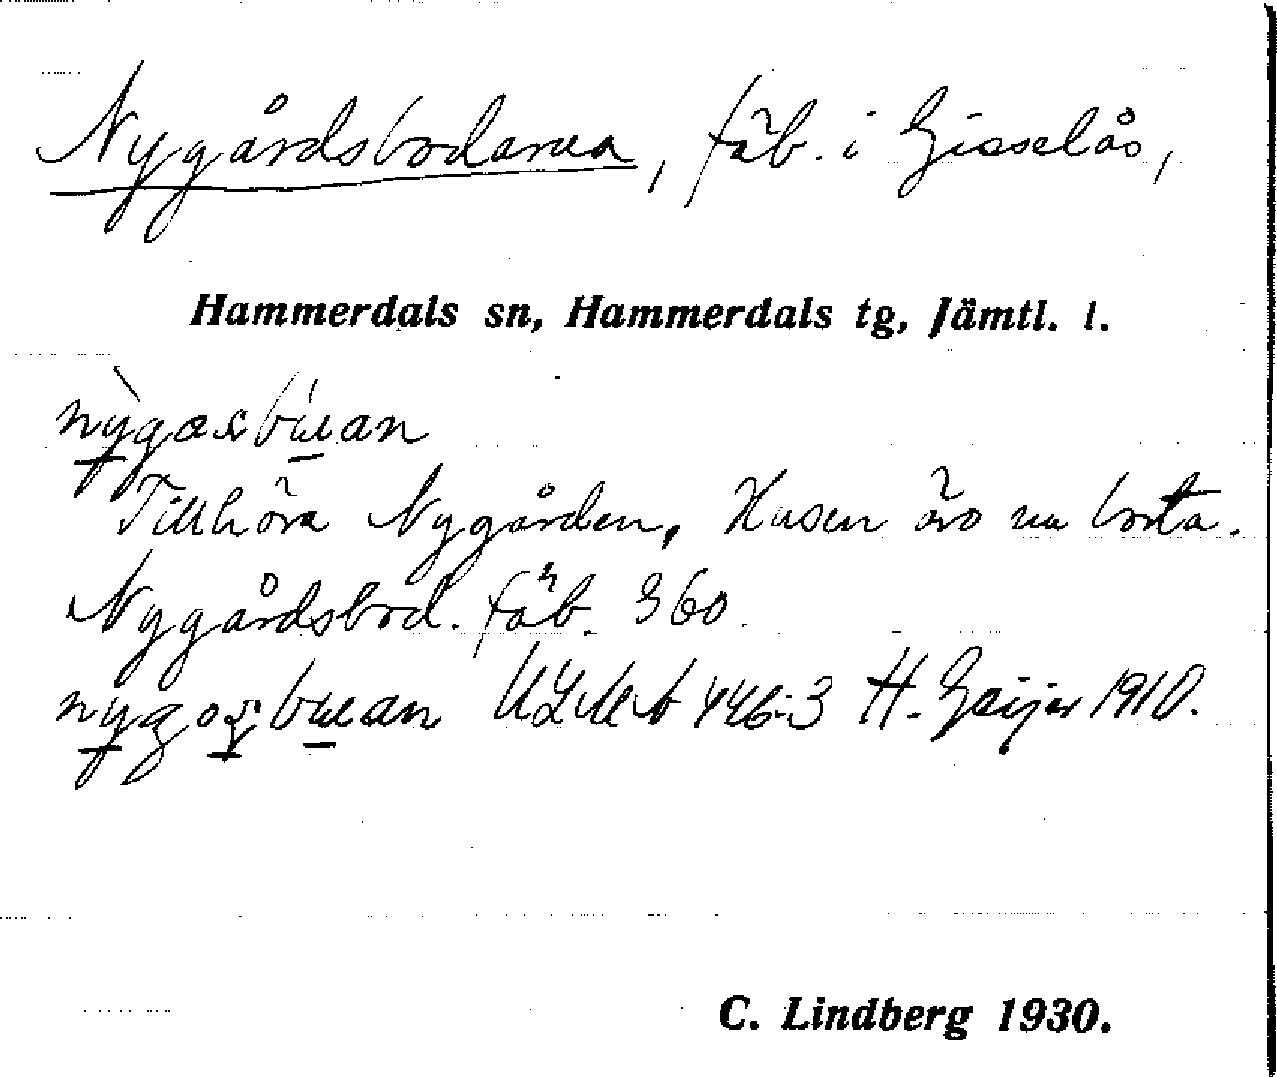 Nygårdsbodarna, fäb. i Gisselås,
Hammerdals sn, Hammerdals tg, Jämtl. l.
Tillhöra Nygården, Husen äro nu borta.
Nygårdsbod. fäb. 360.
446:3 H. Geijer 1910.
C. Lindberg 1930.